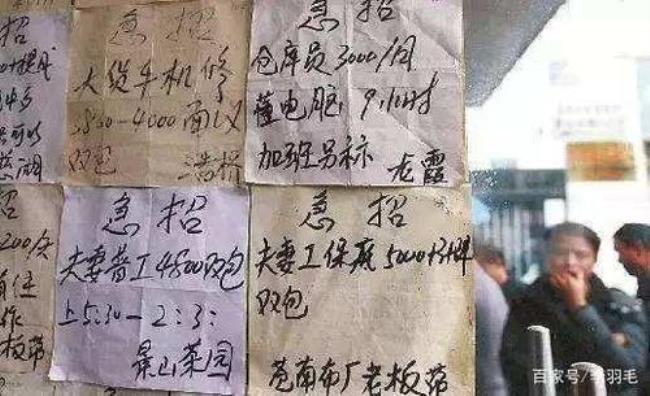 招
急招
大货车机修
3800-4000面议
双包
浩桥
急招
仓库员3000/月
懂电脑 9小时
加班另标
龙霞
招
200/天
板带
急招
夫妻普工4800双包
上5:30-2:3:
景山菜园
急招
夫妻工保底5000
双包
苍南布厂老板带
百家号/李羽毛